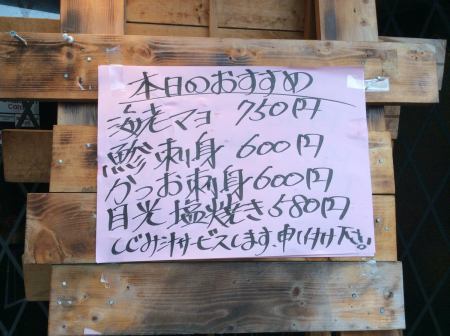 本日のおすすめ
海老マヨ 750円
鯵刺身 600円
かつお刺身 600円
目光塩焼き 580円
しじみ汁サービスします、申し付け下さい!